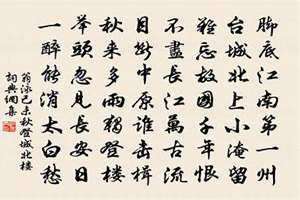 脚底江南第一州
台城北上小淹留
難忘故國千年恨
不盡長江萬古流
目斷中原誰击楫
秋来多雨獨登樓
舉頭忽見長安日
一醉能消太白愁
翁泳己未秋登城北楼
詞典網集